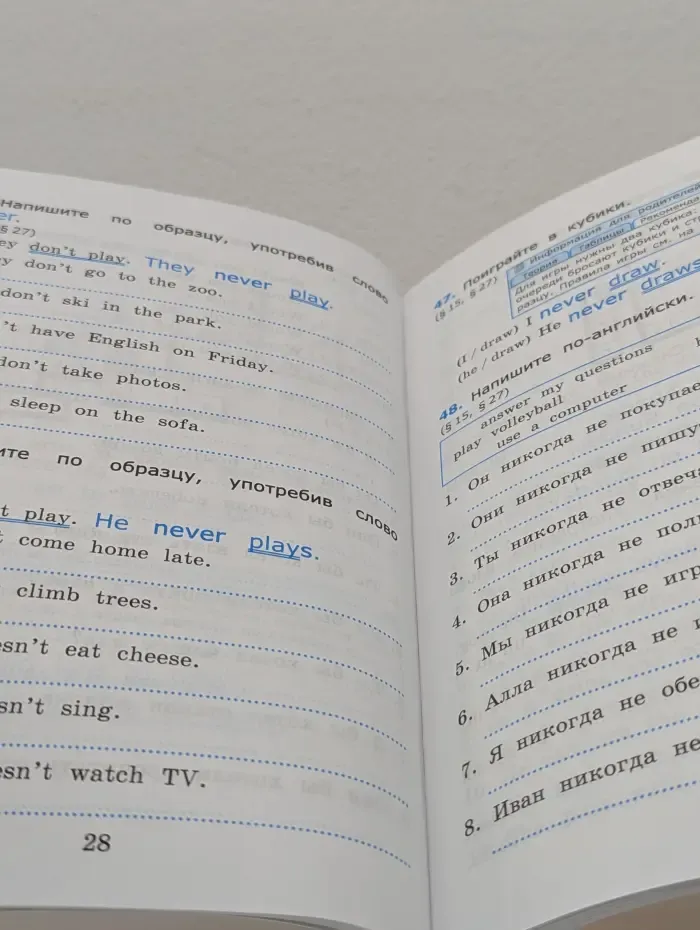 Напишите по образцу, употребив слово
er.
§ 27)
ey don't play. They never play.
y don't go to the zoo.
don't ski in the park.
't have English on Friday.
don't take photos.
sleep on the sofa.
ите по образцу, употребив слово
t play. He never plays.
t come home late.
climb trees.
esn't eat cheese.
sn't sing.
esn't watch TV.
28
47. Поиграйте в кубики.
(§ 15, § 27)
Информация для родителей
Теория Таблицы Рекоменда
Для игры нужны два кубика.
очереди бросают кубики и ст
разцу. Правила игры см. на
(I / draw) I never draw.
(he / draw) He never draws
48. Напишите по-английски.
(§ 15, § 27)
answer my questions
play volleyball
use a computer
1. Он никогда не покупае
2. Они никогда не пишу
3. Ты никогда не отвеча
4. Она никогда не пол
5. Мы никогда не игр
6. Алла никогда не
7. Я никогда не обе
8. Иван никогда не